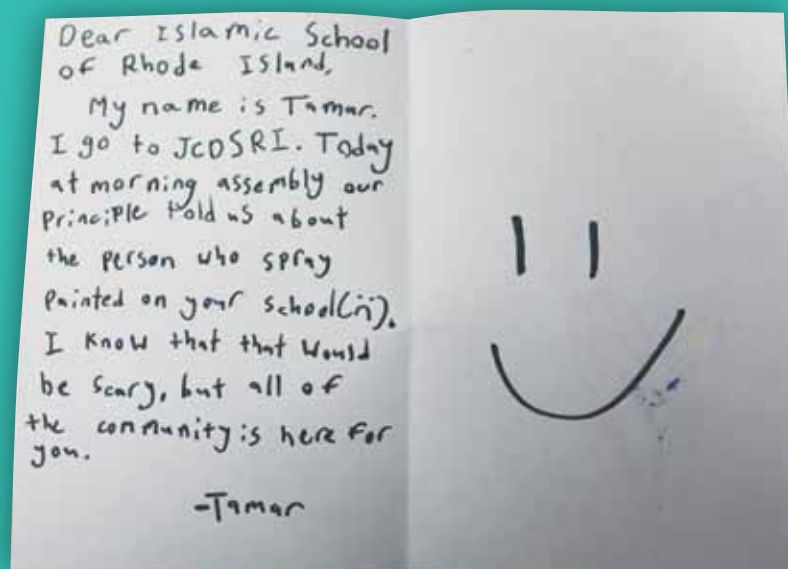 Dear Islamic School
of Rhode Island,
My name is Tamar.
I go to JCDSRI. Today
at morning assembly our
Principle told us about
the person who spray
painted on your school(:().
I know that that would
be scary, but all of
the community is here for
you.
-Tamar